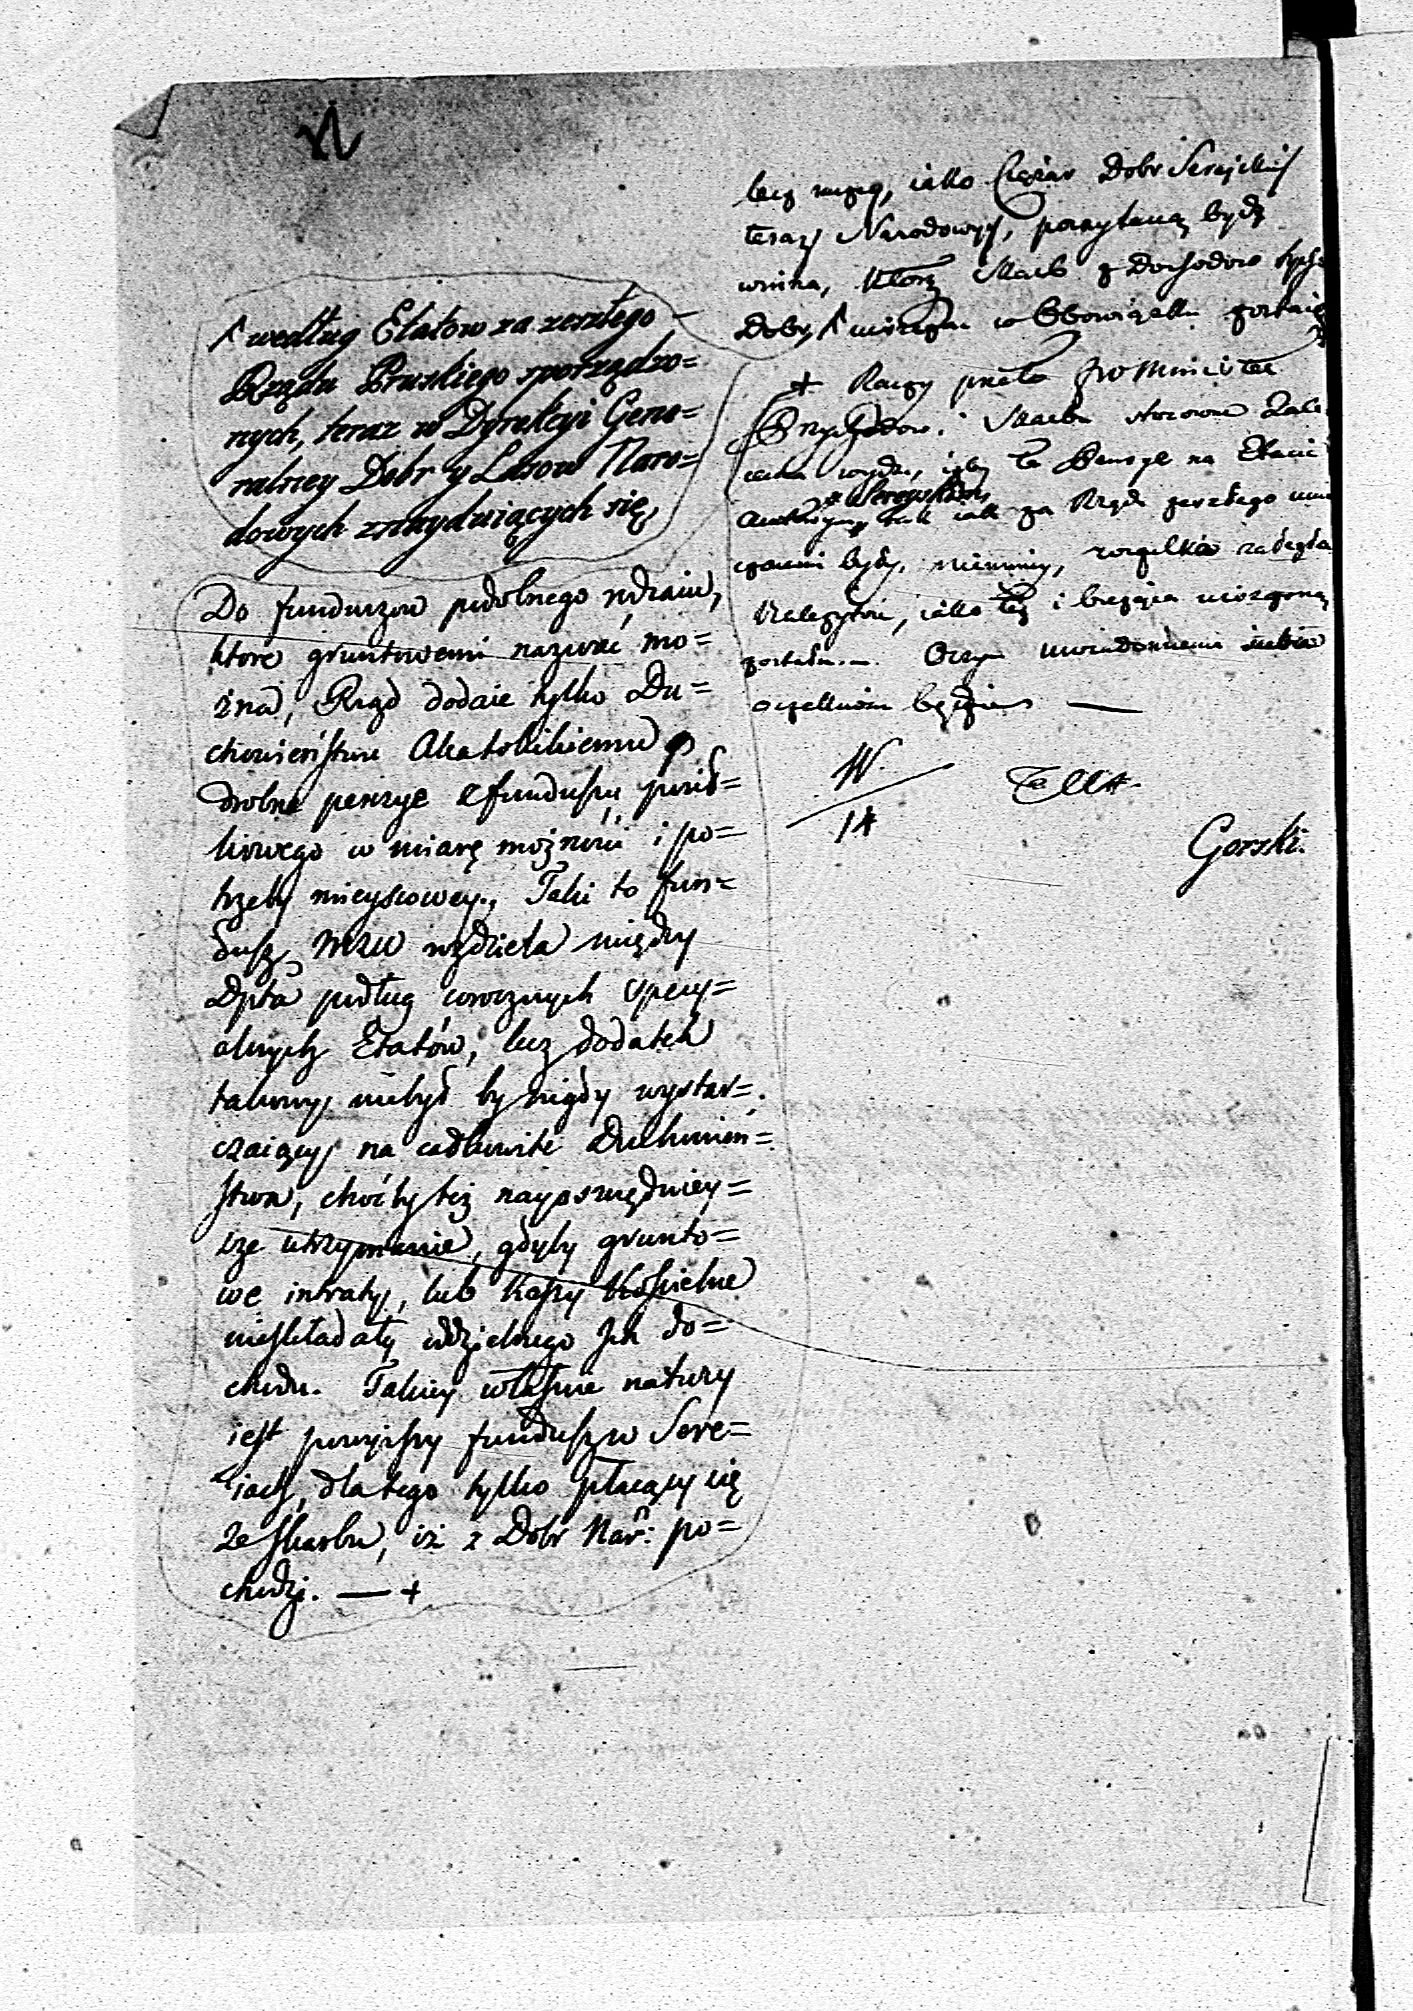 Λ według Etatow za zeszłego
Rządu Pruskiego sporządzo=
nych, teraz w Dyrekcyi Gene=
ralney Dobr y Lasow Naro=
dowych znayduiących się,
Do funduszow podobnego rodzaiu,
ktore gruntowemi nazwać mo=
żna, Rząd dodaie tylko Du=
chowieństwu Akatolickiemu
drobne pensye z funduszu
w miarę możności i po=
trzeby mieyscowey. Taki to fun=
dusz MSW rozdziela między
Dpta podług corocznych specy=
alnych Etatów, lecz dodatek
takowy niebył by nigdy wystar=
czaiący na całkowite Duchowień=
stwa, choćby też nayoszczędniey=
sze utrzymanie, gdyby grunto=
we intraty, lub Kassy Kościelne
nieskładały oddzielnego Ich do=
chodu. Takiey własnie natury
iest powyższy fundusz w Sere=
iach, dlatego tylko płacący się
ze skarbu, iż z Dobr Nar: po=
chodzi. — +
lecz raczey, iako Ciężar Dobr Sereyskich
teraz Narodowych, poczytaną bydź
winna, ktorą Skarb z Dochodow tychże
Dobr, Λ uiszczać w Obowiązku zostaie
+ Raczy przeto JW Minister
Przychodow i Skarbu stosowne Zale
cenia wydać, iżby te Pensye na Etacie
Sereyskim
tak iak za Rządu zeszłego
były, niemniey, wszelka zaległa
Należytość, iako też i bieżąca uiszczoną
została. — O czym uwiadomienia
oczekiwać będzie —
W.
14
Gorski.